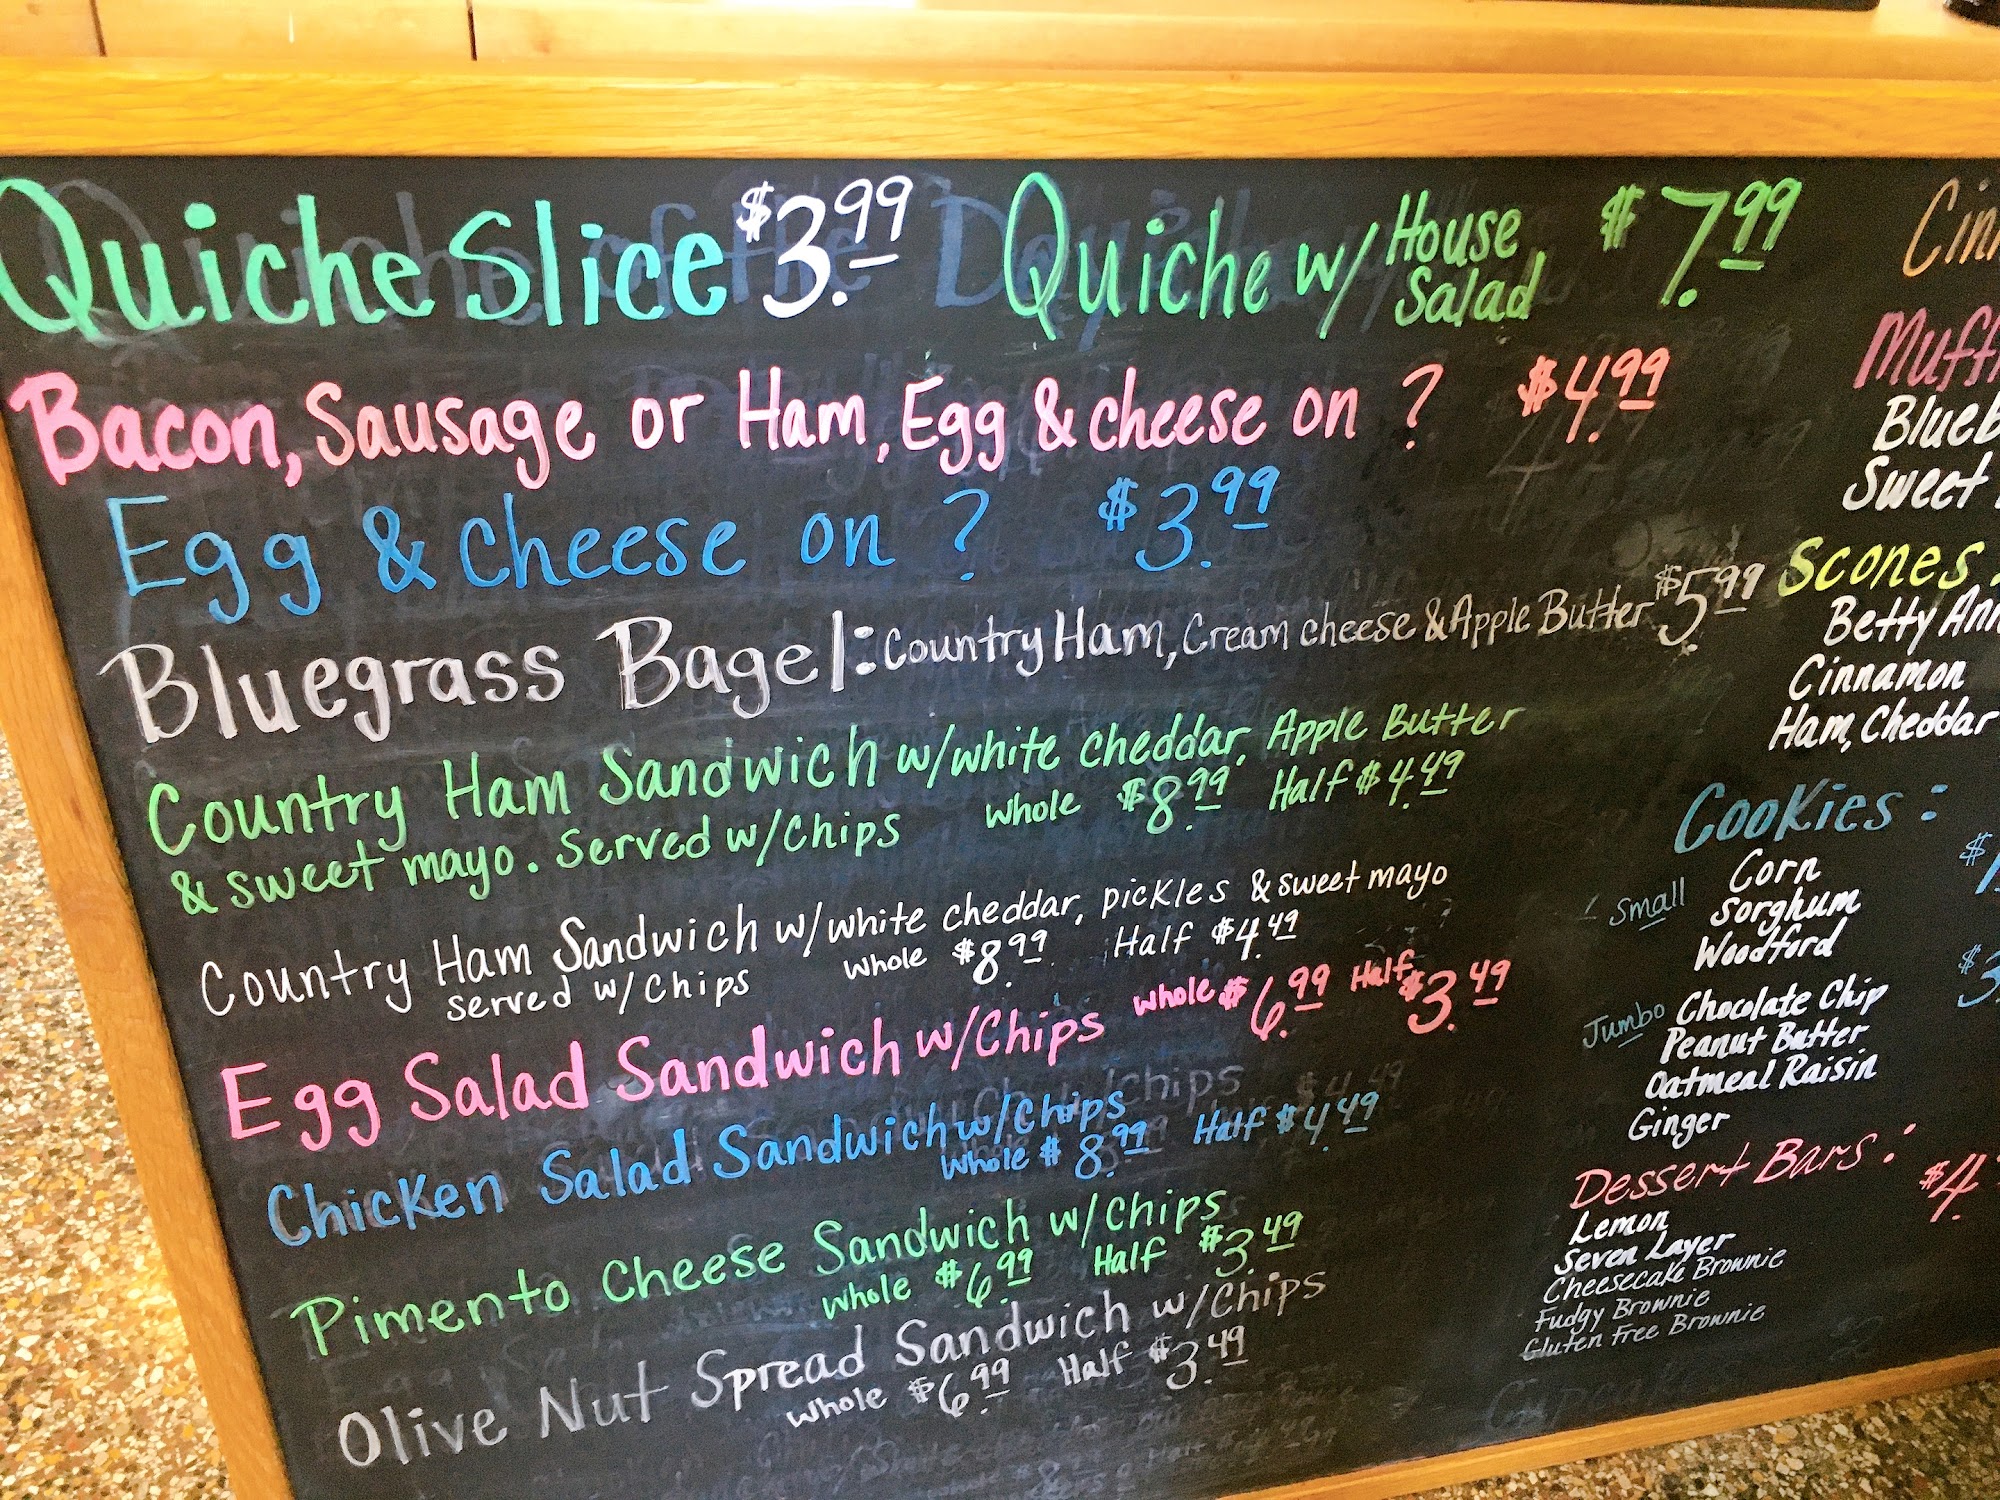 Quiche Slice $3.99 Quiche w/ House Salad $7.99
Bacon, Sausage or Ham, Egg & cheese on ? $4.99
Egg & cheese on ? $3.99
Bluegrass Bagel: Country Ham, Cream cheese & Apple Butter $5.99
Country Ham Sandwich w/white cheddar, Apple Butter
& sweet mayo. Served w/Chips Whole $8.99 Half $4.49
Country Ham Sandwich w/white cheddar, pickles & sweet mayo
Served w/Chips Whole $8.99 Half $4.49
Egg Salad Sandwich w/Chips Whole $6.99 Half $3.49
Chicken Salad Sandwich w/Chips
Whole $8.99 Half $4.49
Pimento Cheese Sandwich w/Chips
Whole $6.99 Half $3.49
Olive Nut Spread Sandwich w/Chips
Whole $6.99 Half $3.49
Scones
Betty Ann
Cinnamon
Ham, Cheddar
Cookies:
Small Corn
Sorghum
Woodford
Jumbo Chocolate Chip
Peanut Butter
Oatmeal Raisin
Ginger
Dessert Bars: $4.
Lemon
Seven Layer
Cheesecake Brownie
Fudgy Brownie
Gluten Free Brownie